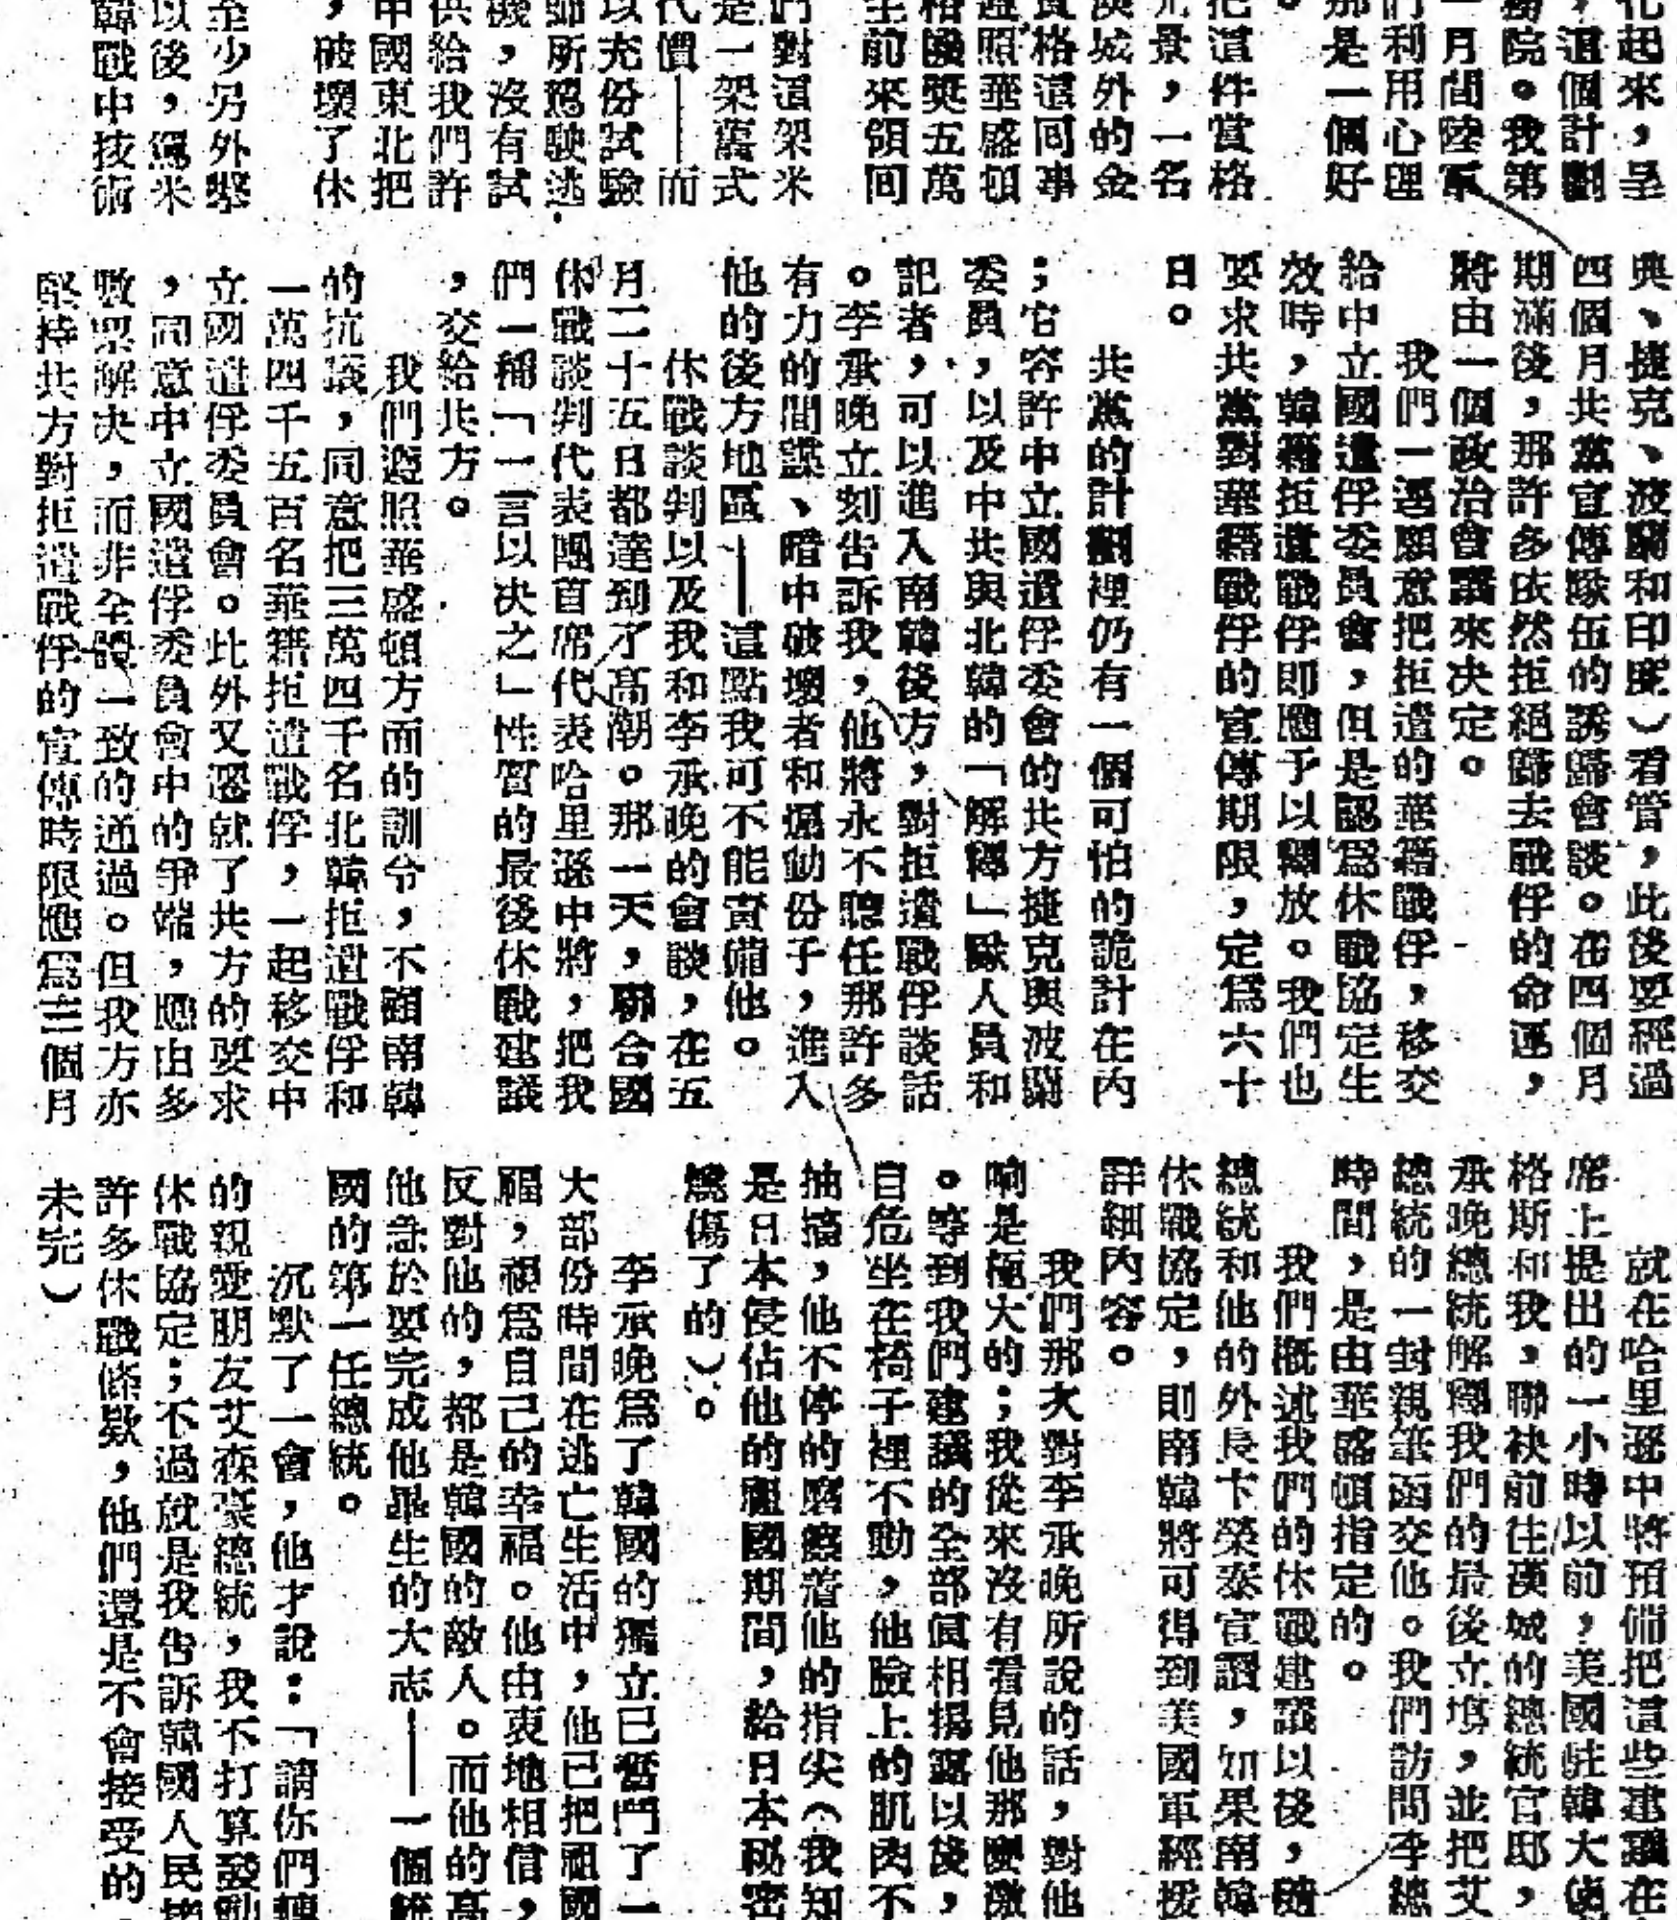 化起來，呈
，這個計劃
務院。我第
一月間陸軍
們利用心理
那是一個好
。
把這件賞格
光景，一名
漢城外的金
賞格這回事
遵照華盛頓
格獎五萬
前來領回
們對這架米
是一架舊式
代價——而
以充份試驗
師所駕駛逃
機，沒有試
供給我們許
中國東北把
，破壞了休
至少另外擊
以後，駕米
韓戰中技術
典、捷克、波蘭和印度）看管，此後要經過
四個月共黨宣傳隊伍的誘歸會談。在四個月
期滿後，那許多依然拒絕歸去戰俘的命運，
將由一個政治會議來决定。
我們一逕願意把拒遣的華籍戰俘，移交
給中立國遣俘委員會，但是認爲休戰協定生
效時，韓籍拒遣戰俘即應予以釋放。我們也
要求共黨對華籍戰俘的宣傳期限，定爲六十
日。
共黨的計劃裡仍有一個可怕的詭計在內
；它容許中立國遣俘委會的共方捷克與波蘭
委員，以及中共與北韓的「解釋」隊人員和
記者，可以進入南韓後方，對拒遣戰俘談話
。李承晚立刻告訴我，他將永不聽任那許多
有力的間諜、暗中破壞者和煽動份子，進入
他的後方地區——這點我可不能責備他。
休戰談判以及我和李承晚的會談，在五
月二十五日都達到了高潮。那一天，聯合國
休戰談判代表團首席代表哈里遜中將，把我
們一稱「一言以决之」性質的最後休戰建議
，交給共方。
我們遵照華盛頓方面的訓令，不顧南韓
的抗議，同意把三萬四千名北韓拒遣戰俘和
一萬四千五百名華籍拒遣戰俘，一起移交中
立國遣俘委員會。此外又遷就了共方的要求
，同意中立國遣俘委員會中的爭端，應由多
數票解决，而非全體一致的通過。但我方亦
堅持共方對拒遣戰俘的宣傳時限應爲三個月
就在哈里遜中將預備把這些建議在
席上提出的一小時以前，美國駐韓大使
格斯和我，聯袂前往漢城的總統官邸，
承晚總統解釋我們的最後立塲，並把艾
總統的一封親筆函交他。我們訪問李總
時間，是由華盛頓指定的。
我們概述我們的休戰建議以後，隨
總統和他的外長卞榮泰宣讀，如果南韓
休戰協定，則南韓將可得到美國軍經援
詳細內容。
我們那次對李承晚所說的話，對他
响是極大的；我從來沒有看見他那麼激
。等到我們建議的全部眞相揭露以後，
自危坐在椅子裡不動，他臉上的肌肉不
抽搐，他不停的磨擦着他的指尖（我知
是日本侵佔他的祖國期間，給日本秘密
傷了的）。
李承晚爲了韓國的獨立已奮鬥了一
大部份時間在逃亡生活中，他已把祖國
福，視爲自己的幸福。他由衷地相信，
反對他的，都是韓國的敵人。而他的高
他急於要完成他畢生的大志——一個統
國的第一任總統。
沉默了一會，他才說：「請你們轉
的親愛朋友艾森豪總統，我不打算發動
休戰協定；不過就是我告訴韓國人民接
許多休戰條欵，他們還是不會接受的。
未完）